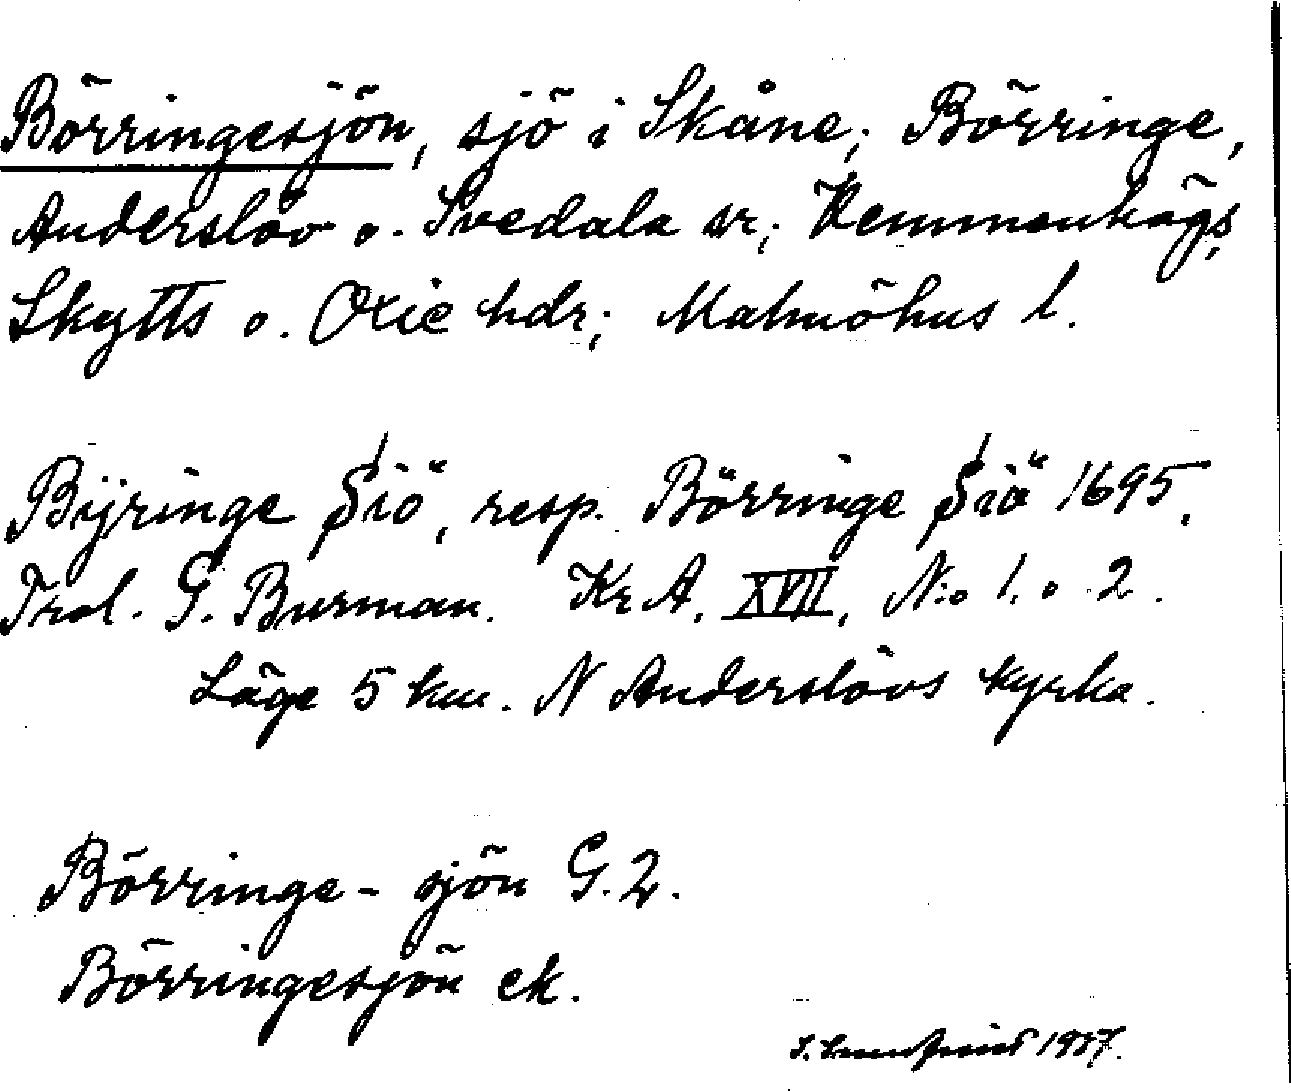 Börringesjön, sjö i Skåne; Börringe,
Anderslöv o. Svedala sr; Vemmenhögs,
Skytts o. Oxie hdr; Malmöhus l.
Bÿringe Siö, resp. Börringe Siö 1695.
Trol. G. Burman. KrA. XVII, N:o 1. o 2.
Läge 5 km. N Anderslövs kyrka.
Börringe - sjön G. 2.
Börringesjön ek.